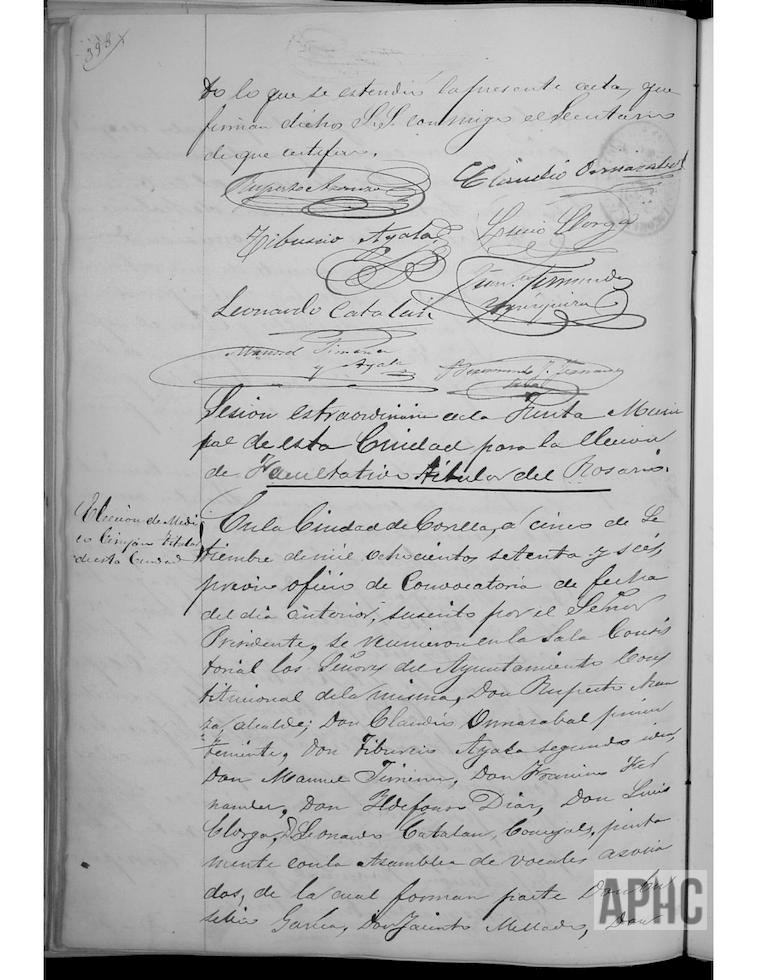 398
do lo que se estendió la presente acta, que
firman dichos S.S. conmigo el Secretario
de que certifico.
Ruperto Aranza
Claudio Ormazabal
Tiburcio Ayala
Lucio Clorga
Leonardo Catalán
Fran.co Fernandez
Manuel Jimenez
y Ayala
Sesion estraordinaria de la Junta Munici
pal de esta Ciudad para la eleccion
de Facultativo titular del Rosario.
Eleccion de Medi
co Cirujano Titular
de esta Ciudad
En la Ciudad de Corella, a cinco de Se
tiembre de mil ochocientos setenta y seis,
previo oficio de Convocatoria de fecha
del dia anterior, suscrito por el Señor
Presidente, se reunieron en la Sala Consis
torial los Señores del Ayuntamiento Cons
titucional de la misma, Don Ruperto Aran
za, alcalde; Don Claudio Ormazabal primer
teniente, Don Tiburcio Ayala segundo idem,
Don Manuel Jimenez, Don Francisco Fer
nandez, Don Ildefonso Diaz, Don Lucio
Clorga, D. Leonardo Catalan, Concejales, junta
mente con la Asamblea de vocales asocia
dos, de la cual forman parte Don Ba
silio Garcia, Don Jacinto Mellado, Don
APHC